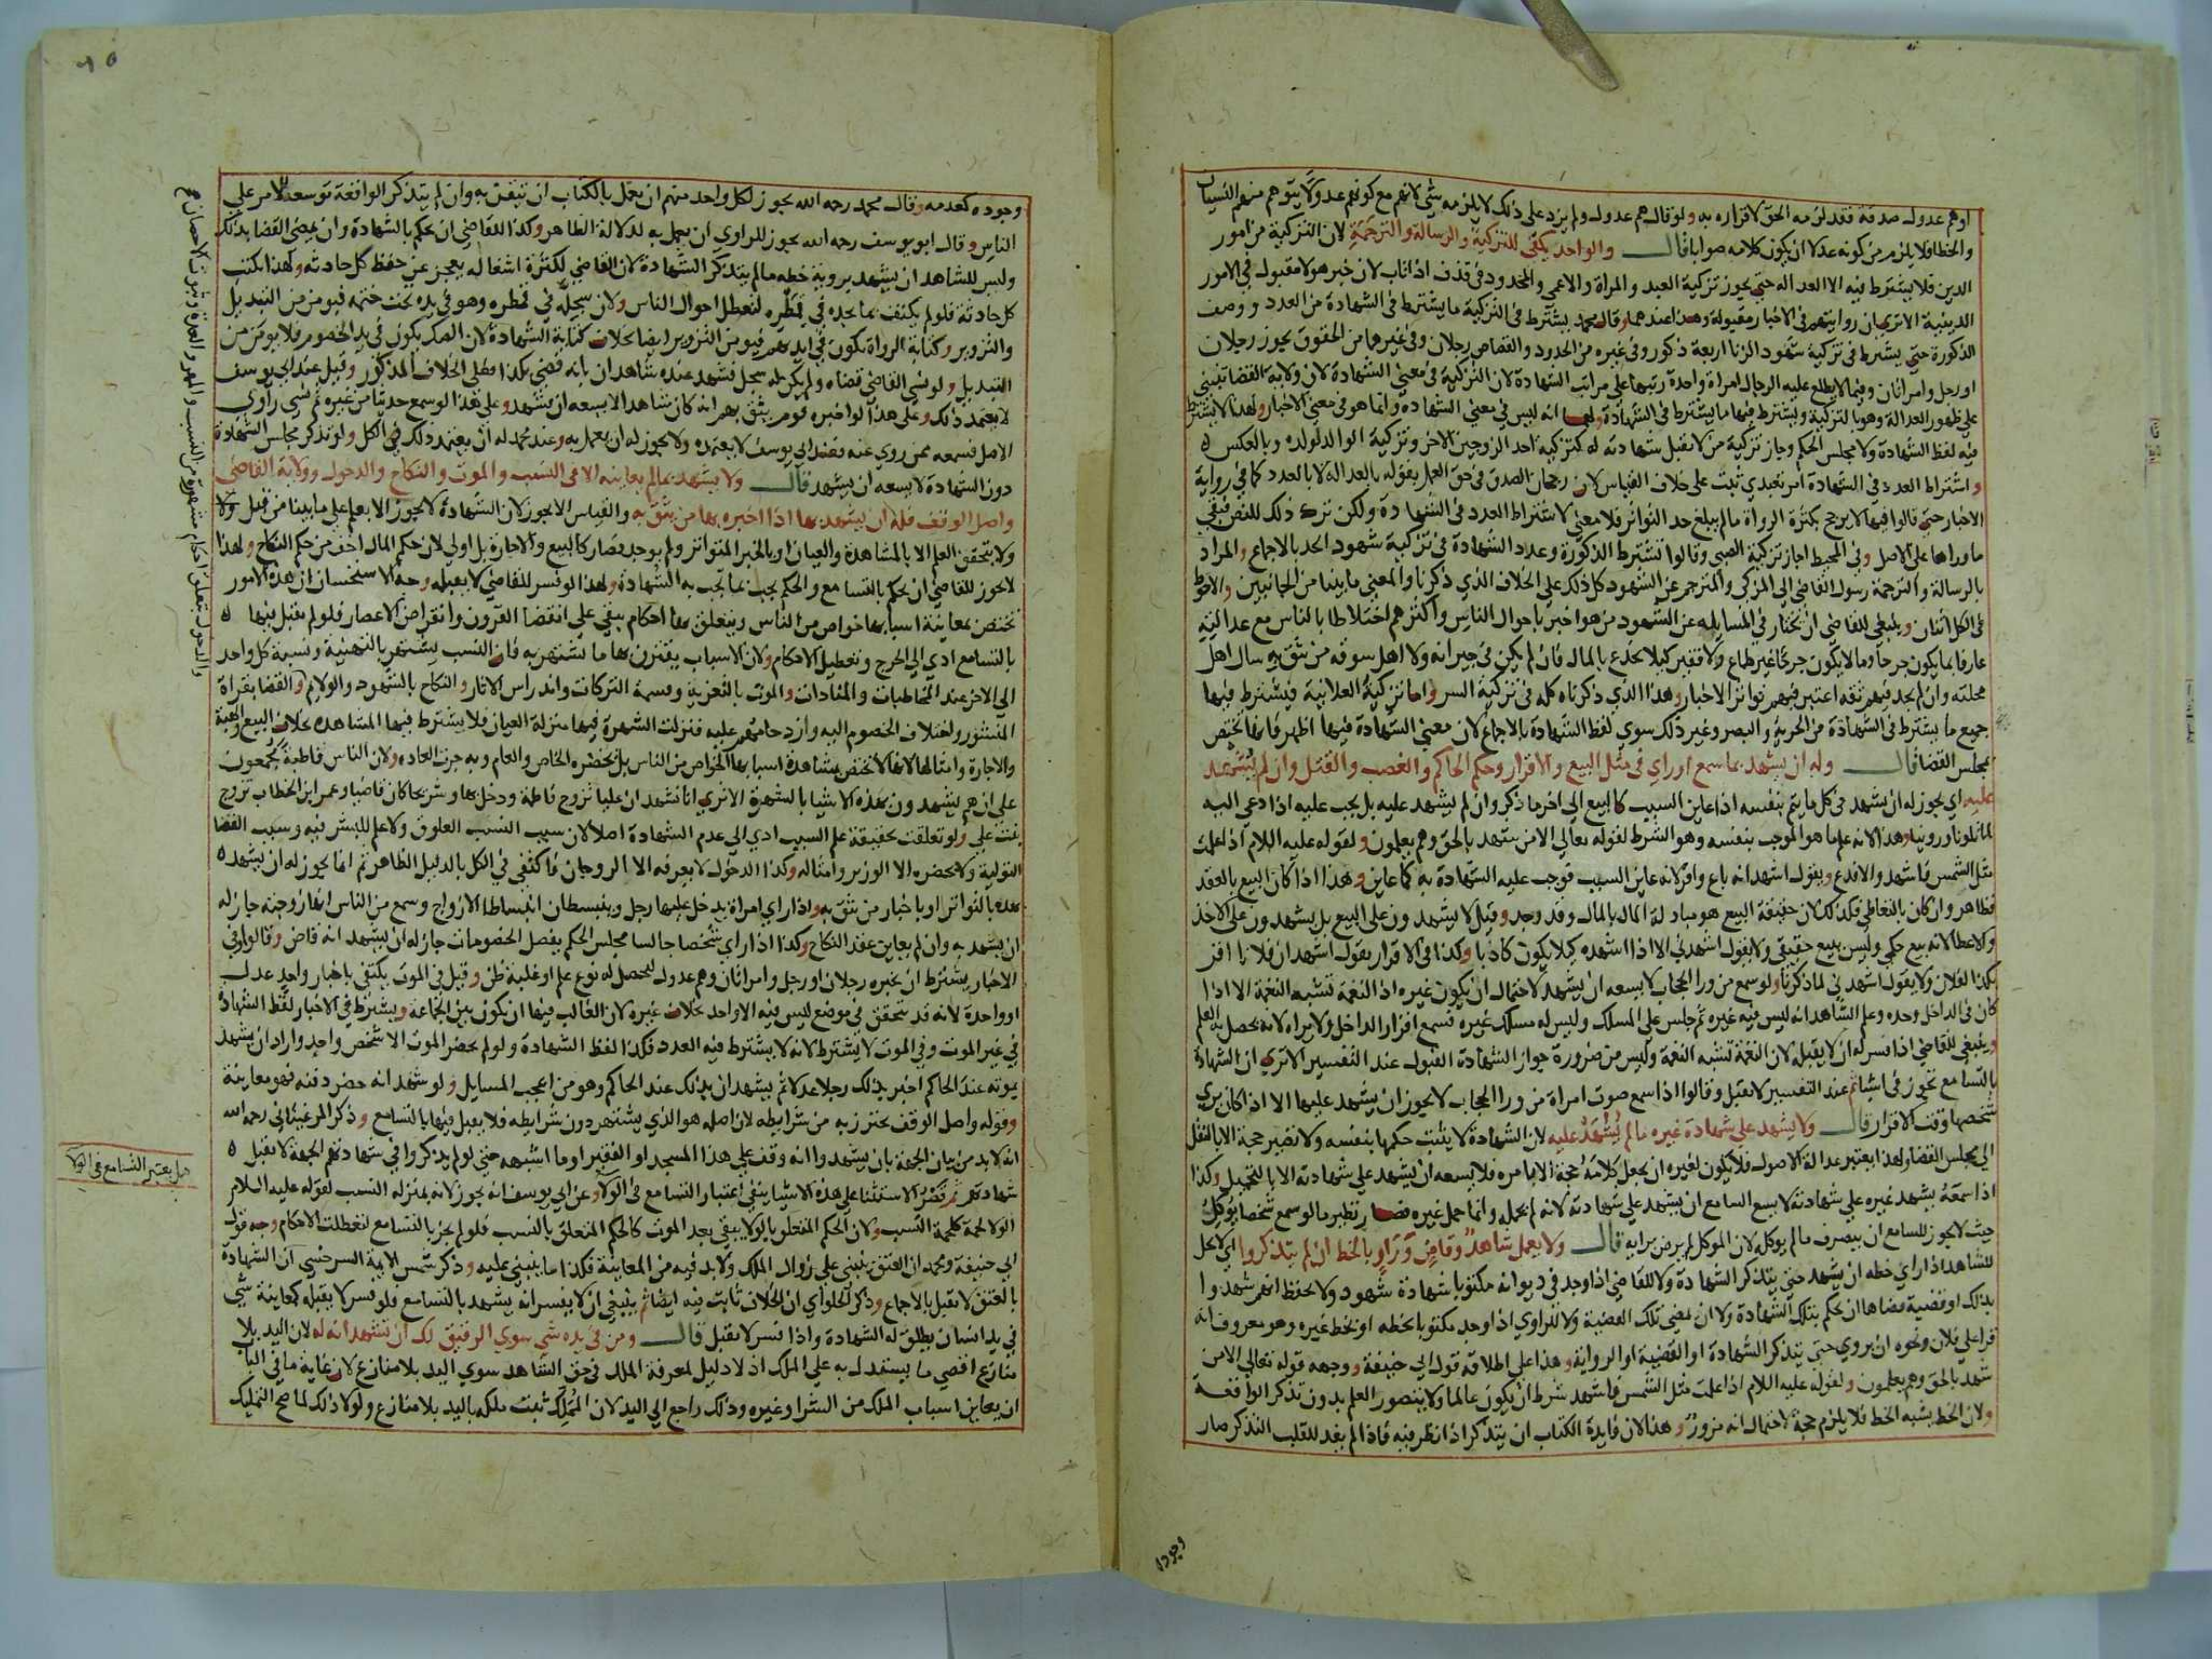 اوهم عدول صدقة فقد لزمه الحق لاقراره به ولو قال هم عدول ولم يزد على ذلك لا يلزمه شي لانهم مع كونهم عدولا يتوهم منهم النسيان
والخطا فلا يلزم من كونه عدلا ان يكون كلامه صوابا قال والواحد يكفي للتزكية والرسالة والترجمة لان التزكية من امور
الدين فلا يشترط فيه الا العدالة حتى يجوز تزكية العبد والمراة والاعمى والمحدود في قذف اذا تاب لان خبر هولا مقبول في الامور
الدينية الا ترى ان روايتهم في الاخبار مقبولة وهذا عندهما وقال محمد يشترط في التزكية ما يشترط في الشهادة من العدد ووصف
الذكورة حتى يشترط في تزكية شهود الزنا اربعة ذكور وفي غيره من الحدود والقصاص رجلان وفي غيرهما من الحقوق يجوز رجلان
او رجل وامراتان وفيما لا يطلع عليه الرجال امراة واحدة رتبها على مراتب الشهادة لان التزكية في معنى الشهادة لان ولاية القضا تبتني
على ظهور العدالة وهو بالتزكية ويشترط فيها ما يشترط في الشهادة ولهما انه ليس في معنى الشهادة وانما هو في معنى الاخبار ولهذا لا يشترط
فيه لفظ الشهادة ولا مجلس الحكم وجاز تزكية من لا تقبل شهادته له كتزكية احد الزوجين الاخر وتزكية الوالد لولده وبالعكس
واشتراط العدد في الشهادة امر تعبدي ثبت على خلاف القياس لان رجحان الصدق في حق العمل بقوله بالعدالة لا بالعدد كما في رواية
الاخبار حتى قالوا فيها لا يرجح بكثرة الرواة مالم يبلغ حد التواتر فلا معنى لاشتراط العدد في الشهادة ولكن ترك ذلك للنص فبقي
ما وراها على الاصل وفي المحيط اجاز تزكية الصبي وقالوا تشترط الذكورة وعدد الشهادة في تزكية شهود الحد بالاجماع والمراد
بالرسالة والترجمة رسول القاضي الى المزكي والمترجم عن الشهود كل ذلك على الخلاف الذي ذكرنا والمعنى ما بينا من الجانبين والاحوط
في الكل اثنان وينبغي للقاضي ان يختار في المسايلة عن الشهود من هو اخبر باحوال الناس واكثرهم اختلاطا بالناس مع عدالته
عارفا بما يكون جرحا وما لا يكون جرحا غير طماع ولا فقير كيلا يخدع بالمال فان لم يكن في جيرانه ولا اهل سوقه من يثق به سال اهل
محلته وان لم يجد فيهم ثقة اعتبر فيهم تواتر الاخبار وهذا الذي ذكرناه كله في تزكية السر واما تزكية العلانية فيشترط فيها
جميع ما يشترط في الشهادة من الحرية والبصر وغير ذلك سوى لفظ الشهادة بالاجماع لان معنى الشهادة فيها اظهر فانها تختص
بمجلس القضا قال وله ان يشهد بما سمع او راي في مثل البيع والاقرار وحكم الحاكم والغصب والقتل وان لم يشهد
عليه اي يجوز له ان يشهد في كل ما يتم بنفسه اذا عاين السبب كالبيع الى اخر ما ذكر وان لم يشهد عليه بل يجب عليه اذا دعي اليه
لما تلونا وروينا وهذا لانه علم ما هو الموجب بنفسه وهو الشرط لقوله تعالى الا من شهد بالحق وهم يعلمون ولقوله عليه السلام اذا علمت
مثل الشمس فاشهد والا فدع ويقول اشهد انه باع واقر لانه عاين السبب فوجب عليه الشهادة به كما عاين وهذا اذا كان البيع بالعقد
فظاهر وان كان بالتعاطي فكذلك لان حقيقة البيع هو مبادلة المال بالمال وقد وجد وقيل لا يشهدون على البيع بل يشهدون على الاخذ
والاعطا لانه بيع حكمي وليس ببيع حقيقي ولا يقول اشهدني الا اذا اشهده كيلا يكون كاذبا وكذا في الاقرار يقول اشهد ان فلانا اقر
بكذا لفلان ولا يقول اشهدني لما ذكرنا ولو سمع من ورا الحجاب لا يسعه ان يشهد لاحتمال ان يكون غيره اذ النغمة تشبه النغمة الا اذا
كان في الداخل وحده وعلم الشاهد انه ليس فيه غيره ثم جلس على المسلك وليس له مسلك غيره فسمع اقرار الداخل ولا يراه لانه يحصل به العلم
وينبغي للقاضي اذا فسر له ان لا يقبله لان النغمة تشبه النغمة وليس من ضرورة جواز الشهادة القبول عند التفسير الا ترى ان الشهادة
بالتسامع تجوز في اشيا ثم عند التفسير لا تقبل وقالوا اذا سمع صوت امراة من ورا الحجاب لا يجوز ان يشهد عليها الا اذا كان يرى
شخصها وقت الاقرار قال ولا يشهد على شهادة غيره مالم يشهد عليه لان الشهادة لا يثبت حكمها بنفسه ولا تصير حجة الا بالنقل
الى مجلس القضا ولهذا يعتبر عدالة الاصول فلا يكون لغيره ان يجعل كلامه حجة الا بامره فلا يسعه ان يشهد على شهادته الا بالتحميل وكذا
اذا سمعه يشهد غيره على شهادته لا يسع السامع ان يشهد على شهادته لانه لم يحمله وانما حمل غيره فصار نظير مالو سمع شخصا يوكل
حيث لا يجوز للسامع ان يتصرف مالم يوكله لان الموكل لم يرض برايه قال ولا يعمل شاهد وقاض وراو بالخط ان لم يتذكروا اي لا يحل
للشاهد اذا راي خطه ان يشهد حتى يتذكر الشهادة ولا للقاضي اذا وجد في ديوانه مكتوبا شهادة شهود ولا يحفظ انهم شهدوا
بذلك او قضية قضاها ان يحكم بتلك الشهادة ولا ان يمضي تلك القضية ولا للراوي اذا وجد مكتوبا بخطه او بخط غيره وهو معروف انه
قرا على فلان ونحوه ان يروي حتى يتذكر الشهادة او القضية او الرواية وهذا على اطلاقه قول ابي حنيفة ووجهه قوله تعالى الا من
شهد بالحق وهم يعلمون ولقوله عليه السلام اذا علمت مثل الشمس فاشهد شرط ان يكون عالما ولا يتصور العلم بدون تذكر الواقعة
ولان الخط يشبه الخط فلا يلزم حجة لاحتمال انه مزور وهذا لان فايدة الكتاب ان يتذكر اذا نظر فيه فاذا لم يفد للقلب التذكر صار
وجوده
وجوده كعدمه وقال محمد رحمه الله يجوز لكل واحد منهم ان يعمل بالكتاب ان تيقن به وان لم يتذكر الواقعة توسعة للامر على
الناس وقال ابو يوسف رحمه الله يجوز للراوي ان يعمل به لدلالة الظاهر وكذا القاضي ان يحكم بالشهادة وان يمضي القضا بذلك
وليس للشاهد ان يشهد بروية خطه مالم يتذكر الشهادة لان القاضي لكثرة اشغاله يعجز عن حفظ كل حادثة ولهذا يكتب
كل حادثة فلو لم يكتف بما يجده في قمطره لتعطل احوال الناس ولان سجله في قمطره وهو في يده تحت ختمه فيومن من التبديل
والتزوير وكتابة الرواة تكون في ايديهم فيومن التزوير ايضا بخلاف كتابة الشهادة لان الصك يكون في يد الخصوم فلا يومن من
التبديل ولو نسي القاضي قضاه ولم يكن له سجل فشهد عنده شاهدان بانه قضى بكذا فعلى الخلاف المذكور وقيل عند ابي يوسف
لا يعتمد ذلك وعلى هذا لو اخبره قوم يثق بهم انه كان شاهدا لا يسعه ان يشهد وعلى هذا لو سمع حديثا من غيره ثم نسي راوي
الاصل فسمعه ممن روي عنه فعند ابي يوسف لا يعتمده ولا يجوز له ان يعمل به وعند محمد له ان يعتمد ذلك في الكل ولو تذكر مجلس الشهادة
دون الشهادة لا يسعه ان يشهد قال ولا يشهد بمالم يعاينه الا في النسب والموت والنكاح والدخول وولاية القاضي
واصل الوقف فله ان يشهد بها اذا اخبره بها من يثق به والقياس الا يجوز لان الشهادة لا يجوز الا بعلم على ما بينا من قبل
ولا يتحقق العلم الا بالمشاهدة والعيان او بالخبر المتواتر ولم يوجد فصار كالبيع والاجارة بل اولى لان حكم المال اخف من حكم النكاح ولهذا
لا يجوز للقاضي ان يحكم بالتسامع والحكم يجب بما تجب به الشهادة ولهذا لو فسر للقاضي لا يقبله وجه الاستحسان ان هذه الامور
تختص بمعاينة اسبابها خواص من الناس ويتعلق بها احكام يبقى على انقضا القرون وانقراض الاعصار فلو لم تقبل فيها
بالتسامع ادى الى الحرج وتعطيل الاحكام ولان الاسباب يقترن بها ما تشتهر به فان النسب يشتهر بالتهنية ونسبة كل واحد
الى الاخر عند المخاطبات والمنادات والموت بالتعزية وقسمة التركات واندراس الاثار والنكاح بالشهود والولايم والقضا بقراة
المنشور واختلاف الخصوم اليه وازدحامهم عليه فنزلت الشهرة فيها منزلة العيان فلا يشترط فيها المشاهدة بخلاف البيع والهبة
والاجارة وامثالها لانها لا تختص بمشاهدة اسبابها الخواص من الناس بل يحضره الخاص والعام وبه جرت العادة ولان الناس قاطبة يجمعون
على انهم يشهدون بهذه الاشيا بالشهرة الا ترى انا نشهد ان عليا تزوج فاطمة ودخل بها وشريحا كان قاضيا وعمر ابن الخطاب تزوج
بنت علي ولو تعلقت بحقيقة علم السبب ادى الى عدم الشهادة اصلا لان سبب النسب العلوق ولا علم للبشر فيه وسبب القضا
التولية ولا يحضره الا الوزير وامثاله وكذا الدخول لا يعرفه الا الزوجان فاكتفي في الكل بالدليل الظاهر ثم انما يجوز له ان يشهد
بهذه بالتواتر او باخبار من يثق به واذا راي امراة يدخل عليها رجل وينبسطان انبساطا الازواج وسمع من الناس انها زوجته جاز له
ان يشهد به وان لم يعاين عقد النكاح وكذا اذا راي شخصا جالسا مجلس الحكم يفصل الخصومات جاز له ان يشهد انه قاض وقالوا في
الاخبار يشترط ان يخبره رجلان او رجل وامراتان وهم عدول ليحصل له نوع علم او غلبة ظن وقيل في الموت يكتفى باخبار واحد عدل
او واحدة لانه قد يتحقق في موضع ليس فيه الا واحد بخلاف غيره لان الغالب فيها ان يكون بين الجماعة ويشترط في الاخبار لفظ الشهادة
في غير الموت وفي الموت لا يشترط لانه لا يشترط فيه العدد فكذا لفظ الشهادة ولو لم يحضر الموت الا شخص واحد واراد ان يشهد
بموته عند الحاكم اخبر بذلك رجلا عدلا ثم يشهدان بذلك عند الحاكم وهو من اعجب المسايل ولو شهد انه حضر دفنه فهو معاينة
وقوله واصل الوقف يحترز به من شرايطه لان اصله هو الذي يشتهر دون شرايطه فلا يقبل فيها بالتسامع وذكر المرغيناني رحمه الله
انه لا بد من بيان الجهة بان يشهدوا انه وقف على هذا المسجد او الفقير او ما اشبهه حتى لو لم يذكروا في شهادتهم الجهة لا تقبل
شهادتهم ثم قصر الاستثنا على هذه الاشيا ينفي اعتبار التسامع في الولا وعن ابي يوسف انه يجوز لانه بمنزله النسب لقوله عليه السلام
الولا لحمة كلحمة النسب ولان الحكم المتعلق بالولا يبقى بعد الموت كالحكم المتعلق بالنسب فلو لم يجز بالتسامع لتعطلت الاحكام وجه قول
ابي حنيفة ومحمد ان العتق يبتنى على زوال الملك ولا بد فيه من المعاينة فكذا ما يبتنى عليه وذكر شمس الايمة السرخسي ان الشهادة
بالعتق لا تقبل بالاجماع وذكر الحلواي ان الخلاف ثابت فيه ايضا ثم ينبغي ان لا يفسر انه يشهد بالتسامع فلو فسر لا يقبله كمعاينة شي
في يد انسان يطلق له الشهادة واذا فسر لا تقبل قال ومن في يده شي سوى الرقيق لك ان تشهد انه له لان اليد بلا
منازع اقصى ما يستدل به على الملك اذ لا دليل لمعرفة الملك في حق الشاهد سوى اليد بلا منازع لان غاية ما في الباب
ان يعاين اسباب الملك من الشرا وغيره وذلك راجع الى اليد لان المملك ثبت ملكه باليد بلا منازع ولولا ذلك لما صح التمليك
هل يعتبر التسامع في الولا